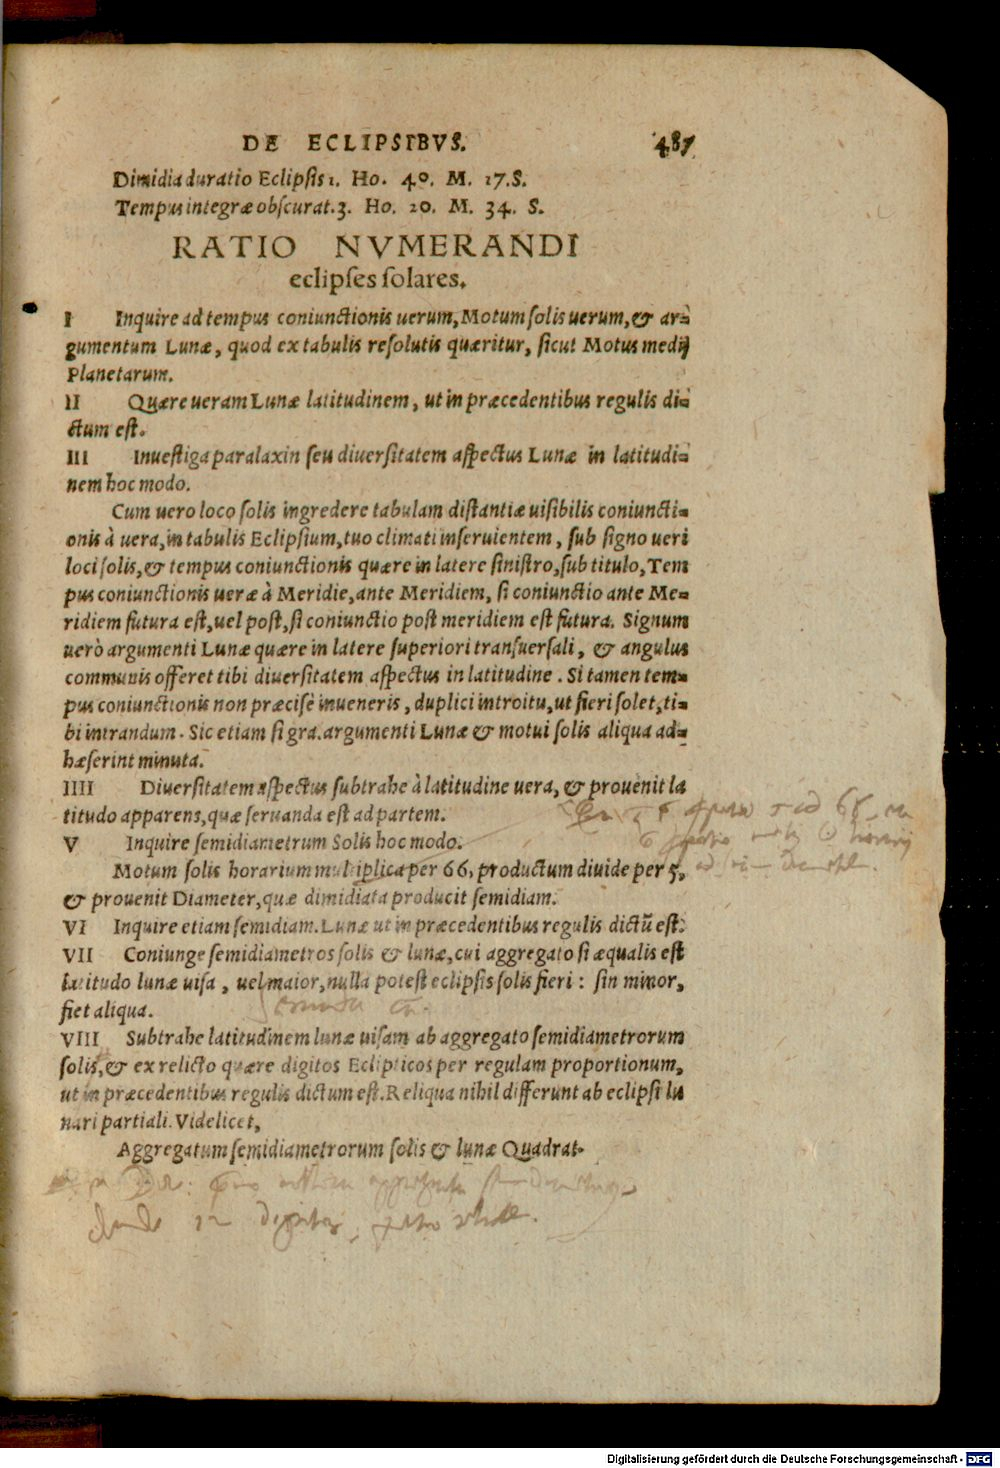 DE ECLIPSIBVS. 487
Dimidia duratio Eclipsis 1. Ho. 40. M. 17. S.
Tempus integræ obscurat. 3. Ho. 20. M. 34. S.
RATIO NVMERANDI
eclipses solares.
I Inquire ad tempus coniunctionis uerum, Motum solis uerum, & ar-
gumentum Lunæ, quod ex tabulis resolutis quæritur, sicut Motus medij
Planetarum.
II Quære ueram Lunæ latitudinem, ut in præcedentibus regulis di-
ctum est.
III Inuestiga paralaxin seu diuersitatem aspectus Lunæ in latitudi-
nem hoc modo.
Cum uero loco solis ingredere tabulam distantiæ uisibilis coniuncti-
onis à uera, in tabulis Eclipsium, tuo climati inseruientem, sub signo ueri
loci solis, & tempus coniunctionis quære in latere sinistro, sub titulo, Tem
pus coniunctionis ueræ à Meridie, ante Meridiem, si coniunctio ante Me-
ridiem futura est, uel post, si coniunctio post meridiem est futura. Signum
uerò argumenti Lunæ quære in latere superiori transuersali, & angulus
communis offeret tibi diuersitatem aspectus in latitudine. Si tamen tem-
pus coniunctionis non præcisè inueneris, duplici introitu, ut fieri solet, ti-
bi intrandum. Sic etiam si gra. argumenti Lunæ & motui solis aliqua ad-
hæserint minuta.
IIII Diuersitatem aspectus subtrahe à latitudine uera, & prouenit la
titudo apparens, quæ seruanda est ad partem.
V Inquire semidiametrum Solis hoc modo.
Motum solis horarium multiplica per 66, productum diuide per 5,
& prouenit Diameter, quæ dimidiata producit semidiam.
VI Inquire etiam semidiam. Lunæ ut in præcedentibus regulis dictũ est.
VII Coniunge semidiametros solis & lunæ, cui aggregato si æqualis est
latitudo lunæ uisa, uel maior, nulla potest eclipsis solis fieri: sin minor,
fiet aliqua.
VIII Subtrahe latitudinem lunæ uisam ab aggregato semidiametrorum
solis, & ex relicto quære digitos Eclipticos per regulam proportionum,
ut in præcedentibus regulis dictum est. Reliqua nihil differunt ab eclipsi lu
nari partiali. Videlicet,
Aggregatum semidiametrorum solis & lunæ Quadrat.
Digitalisierung gefördert durch die Deutsche Forschungsgemeinschaft - DFG